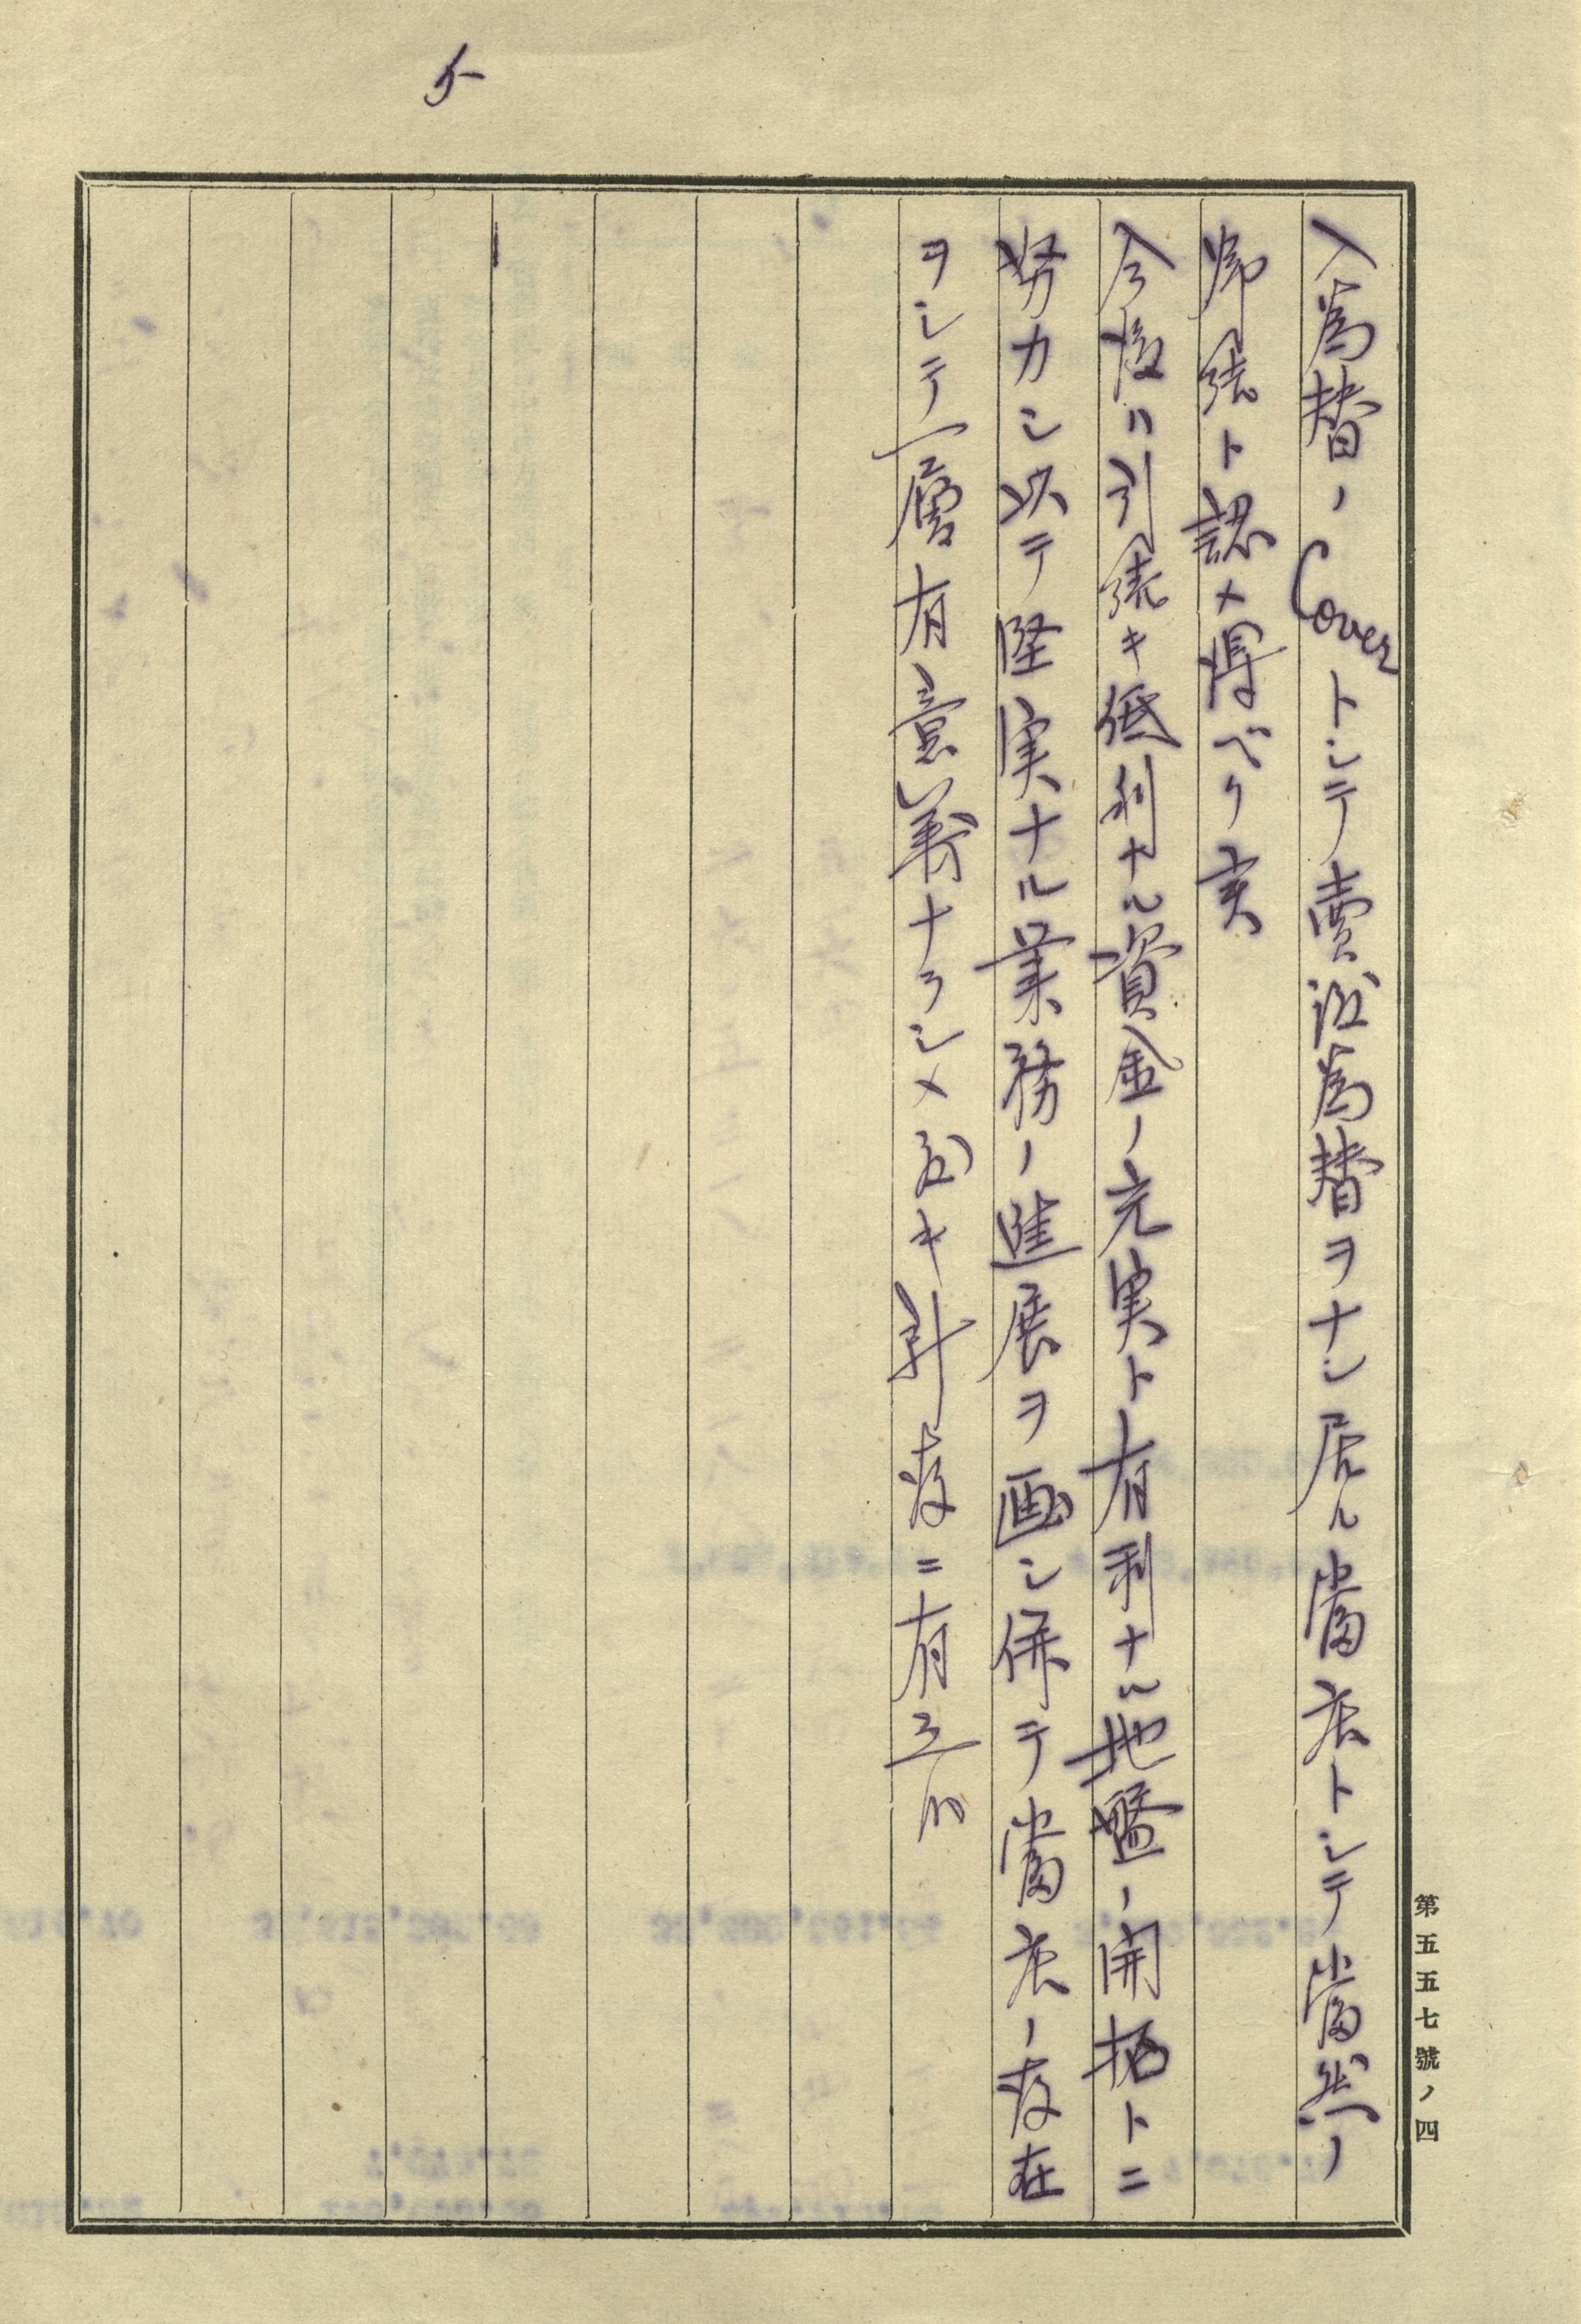 入為替ノCoverトシテ賣為替ヲナシ居ル當店トシテ當然ノ
帰結ト認メ得ベク
今後ハ引続キ低利ナル資金ノ充実ト有利ナル地盤ノ開拓トニ
努力シ以テ堅実ナル業務ノ進展ヲ画シ併テ當店ノ存在
ヲシテ一層有意義ナラシメ度キ所存ニ有之候
第五五七號ノ四